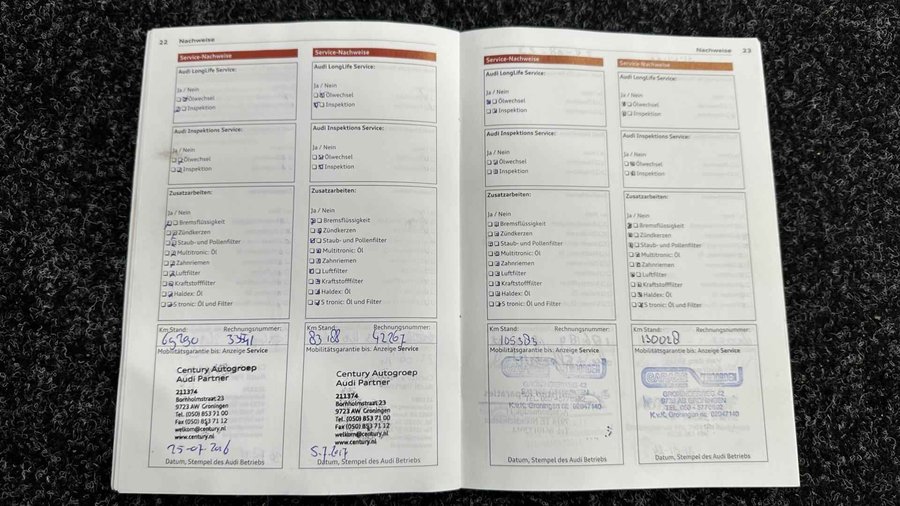 22 Nachweise
Service-Nachweise
Audi LongLife Service:
Ja / Nein
Ölwechsel
Inspektion
Audi Inspektions Service:
Ja / Nein
Ölwechsel
Inspektion
Zusatzarbeiten:
Ja / Nein
Bremsflüssigkeit
Zündkerzen
Staub- und Pollenfilter
Multitronic: Öl
Zahnriemen
Luftfilter
Kraftstofffilter
Haldex: Öl
S tronic: Öl und Filter
Km Stand: Rechnungsnummer:
Mobilitätsgarantie bis: Anzeige Service
Century Autogroep
Audi Partner
211374
Bornholmstraat 23
9723 AW Groningen
Tel. (050) 853 71 00
Fax (050) 853 71 12
welkom@century.nl
www.century.nl
25-07-2016
Datum, Stempel des Audi Betriebs
Service-Nachweise
Audi LongLife Service:
Ja / Nein
Ölwechsel
Inspektion
Audi Inspektions Service:
Ja / Nein
Ölwechsel
Inspektion
Zusatzarbeiten:
Ja / Nein
Bremsflüssigkeit
Zündkerzen
Staub- und Pollenfilter
Multitronic: Öl
Zahnriemen
Luftfilter
Kraftstofffilter
Haldex: Öl
S tronic: Öl und Filter
Km Stand: Rechnungsnummer:
83188 42267
Mobilitätsgarantie bis: Anzeige Service
Century Autogroep
Audi Partner
211374
Bornholmstraat 23
9723 AW Groningen
Tel. (050) 853 71 00
Fax (050) 853 71 12
welkom@century.nl
www.century.nl
Datum, Stempel des Audi Betriebs
Nachweise 23
Service-Nachweise
Audi LongLife Service:
Ja / Nein
Ölwechsel
Inspektion
Audi Inspektions Service:
Ja / Nein
Ölwechsel
Inspektion
Zusatzarbeiten:
Ja / Nein
Bremsflüssigkeit
Zündkerzen
Staub- und Pollenfilter
Multitronic: Öl
Zahnriemen
Luftfilter
Kraftstofffilter
Haldex: Öl
S tronic: Öl und Filter
Km Stand: Rechnungsnummer:
105383
Mobilitätsgarantie bis: Anzeige Service
K.v.K. Groningen nr. 02047140
Datum, Stempel des Audi Betriebs
Service-Nachweise
Audi LongLife Service:
Ja / Nein
Ölwechsel
Inspektion
Audi Inspektions Service:
Ja / Nein
Ölwechsel
Inspektion
Zusatzarbeiten:
Ja / Nein
Bremsflüssigkeit
Zündkerzen
Staub- und Pollenfilter
Multitronic: Öl
Zahnriemen
Luftfilter
Kraftstofffilter
Haldex: Öl
S tronic: Öl und Filter
Km Stand: Rechnungsnummer:
130028
Mobilitätsgarantie bis: Anzeige Service
GARAGE
K.v.K. Groningen nr. 02047140
Datum, Stempel des Audi Betriebs